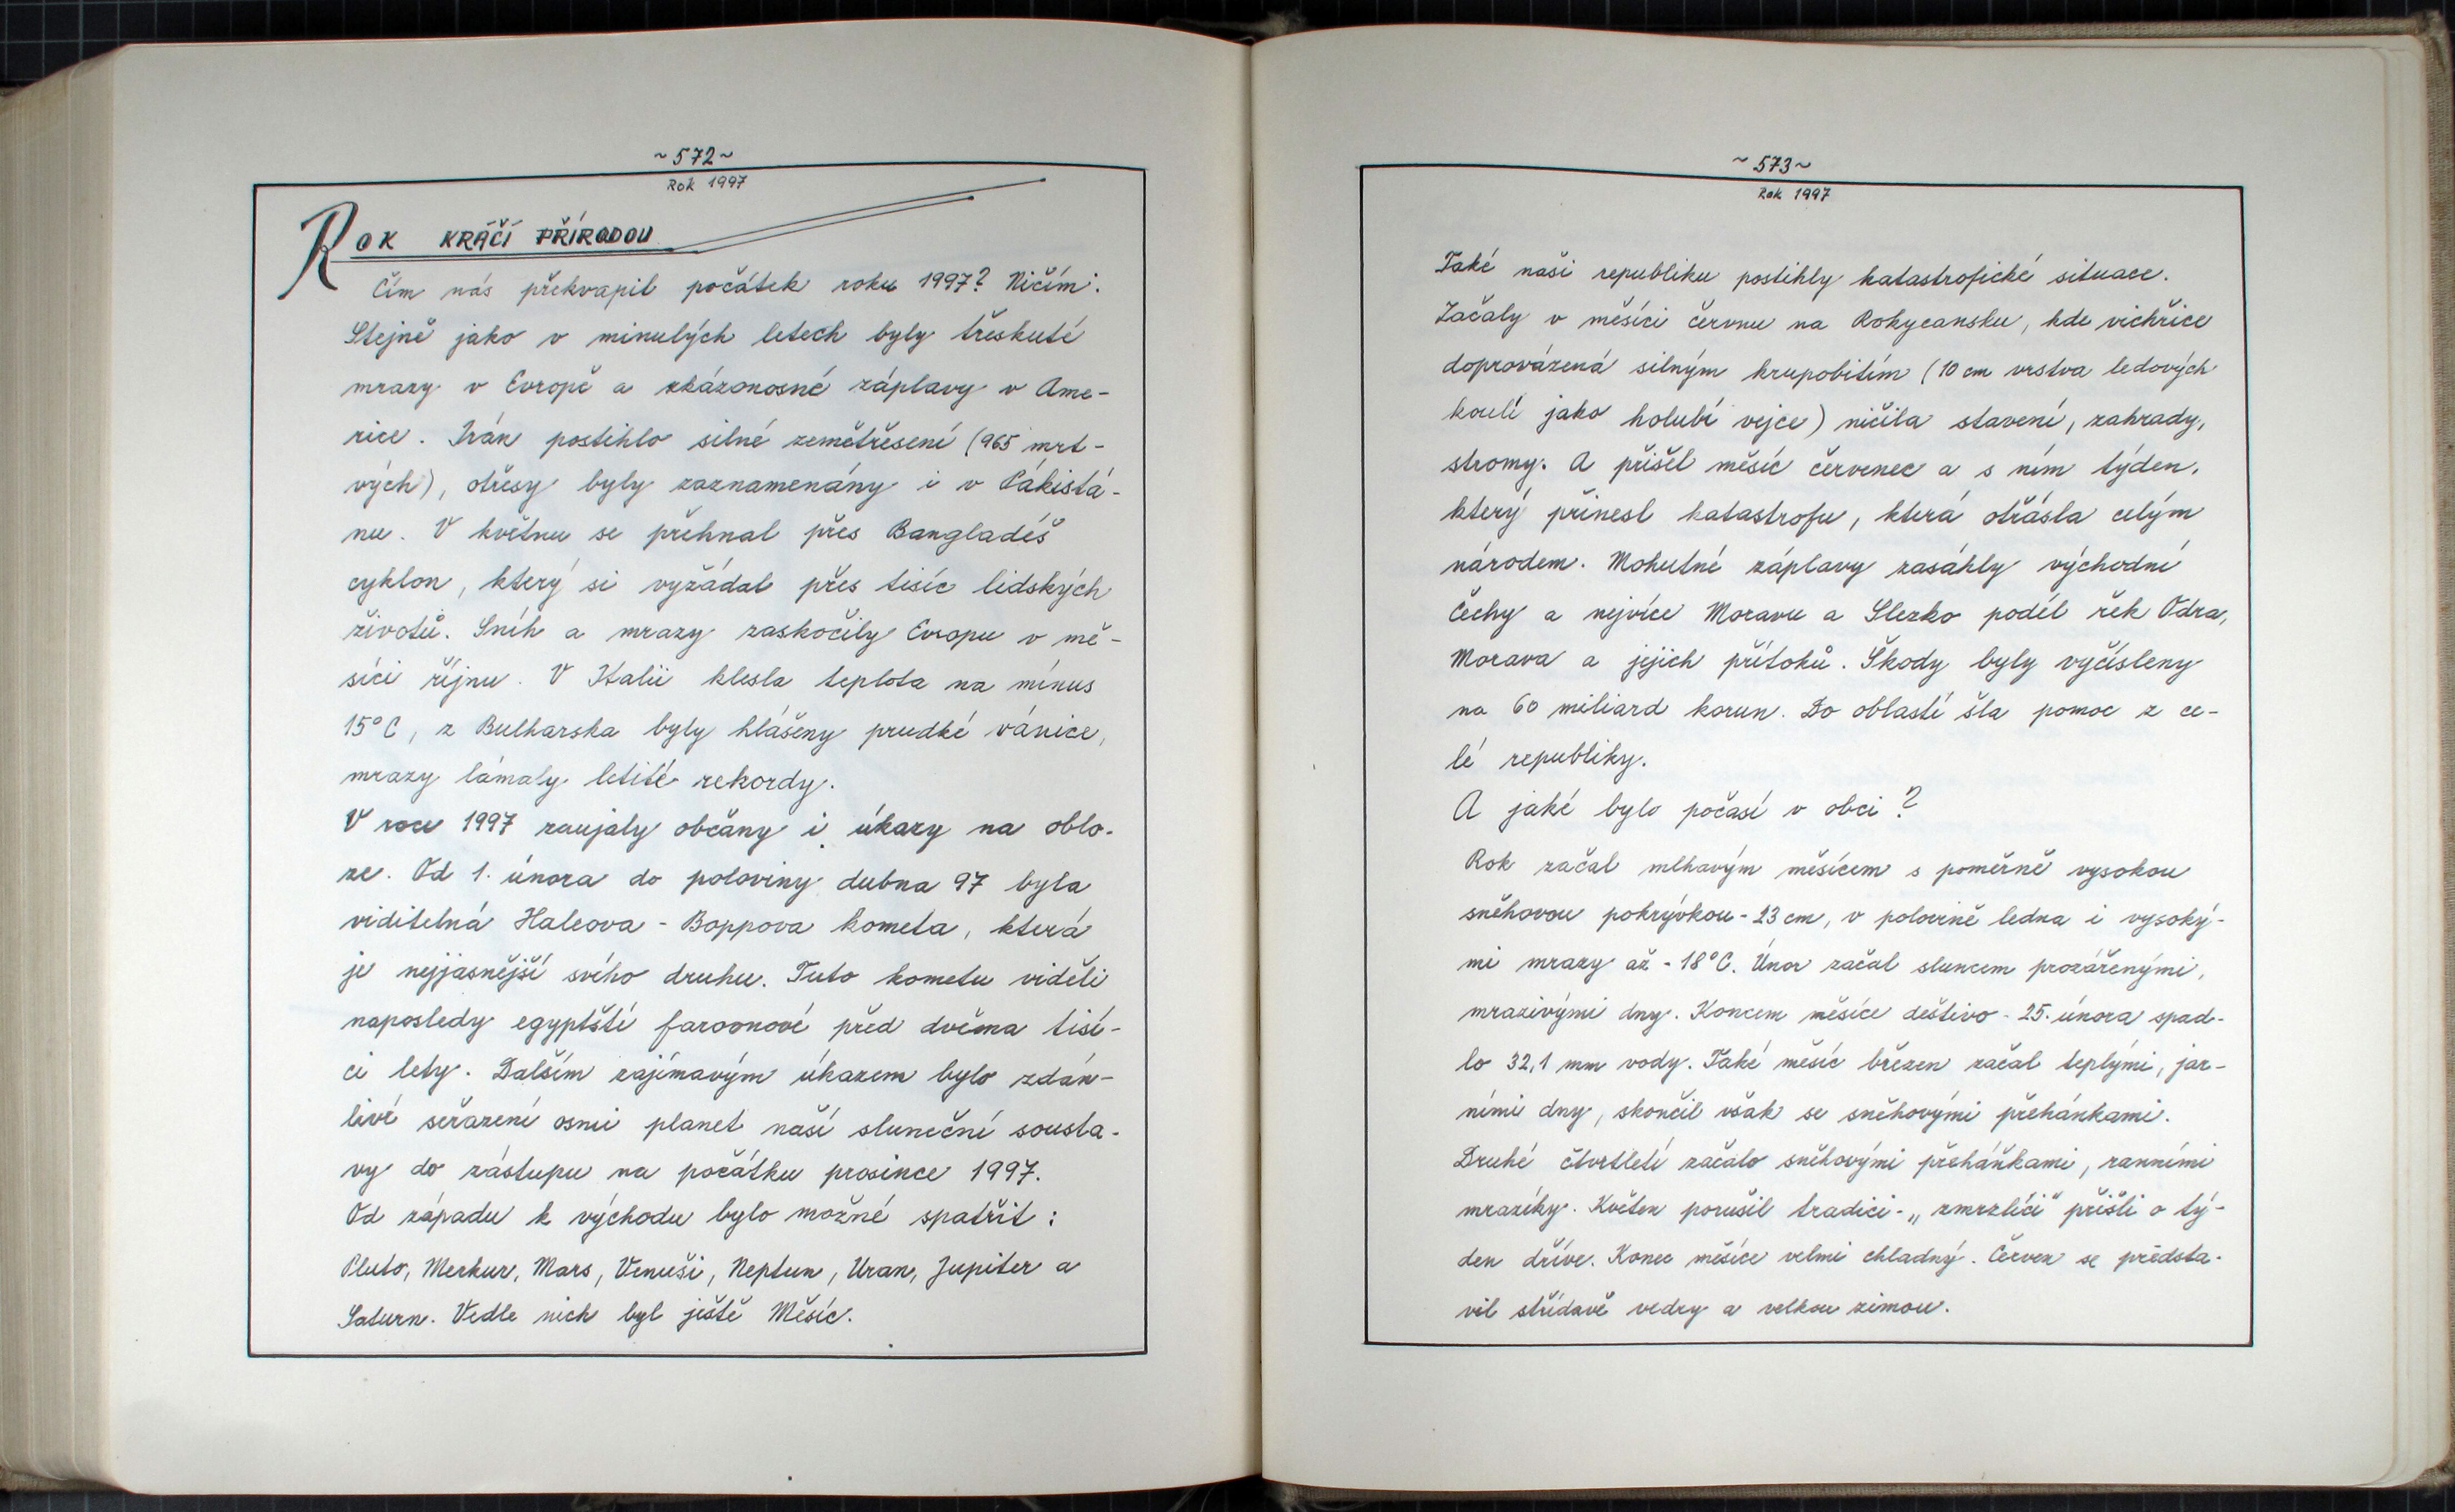 ~572~
Rok 1997
ROK KRÁČÍ PŘÍRODOU
Čím nás překvapil počátek roku 1997? Ničím.
Stejně jako v minulých letech byly třeskuté
mrazy v Evropě a zkázonosné záplavy v Ame-
rice. Irán postihlo silné zemětřesení (965 mrt-
vých), otřesy byly zaznamenány i v Pákistá-
nu. V květnu se přehnal přes Bangladéš
cyklon, který si vyžádal přes tisíc lidských
životů. Sníh a mrazy zaskočily Evropu v mě-
síci říjnu. V Itálii klesla teplota na mínus
15°C, z Bulharska byly hlášeny prudké vánice,
mrazy lámaly letité rekordy.
V roce 1997 zaujaly občany i úkazy na oblo-
ze. Od 1. února do poloviny dubna 97 byla
viditelná Haleova - Boppova kometa, která
je nejjasnější svého druhu. Tuto kometu viděli
naposledy egyptští faraonové před dvěma tisí-
ci lety. Dalším zajímavým úkazem bylo zdán-
livé seřazení osmi planet naší sluneční sousta-
vy do zástupu na počátku prosince 1997.
Od západu k východu bylo možné spatřit:
Pluto, Merkur, Mars, Venuši, Neptun, Uran, Jupiter a
Saturn. Vedle nich byl ještě Měsíc.
~573~
Rok 1997
Také naši republiku postihly katastrofické situace.
Začaly v měsíci červnu na Rokycansku, kde vichřice
doprovázená silným krupobitím (10 cm vrstva ledových
koulí jako holubí vejce) ničila stavení, zahrady,
stromy. A přišel měsíc červenec a s ním týden,
který přinesl katastrofu, která otřásla celým
národem. Mohutné záplavy zasáhly východní
Čechy a nejvíce Moravu a Slezko podél řek Odra,
Morava a jejich přítoků. Škody byly vyčísleny
na 60 miliard korun. Do oblastí šla pomoc z ce-
lé republiky.
A jaké bylo počasí v obci?
Rok začal mlhavým měsícem s poměrně vysokou
sněhovou pokrývkou - 23 cm, v polovině ledna i vysoký-
mi mrazy až - 18°C. Únor začal sluncem prozářenými,
mrazivými dny. Koncem měsíce deštivo - 25. února spad-
lo 32,1 mm vody. Také měsíc březen začal teplými, jar-
ními dny, skončil však se sněhovými přehánkami.
Druhé čtvrtletí začalo sněhovými přeháňkami, ranními
mrazíky. Květen porušil tradici - „zmrzlíci" přišli o tý-
den dříve. Konec měsíce velmi chladný. Červen se předsta-
vil střídavě vedry a velkou zimou.